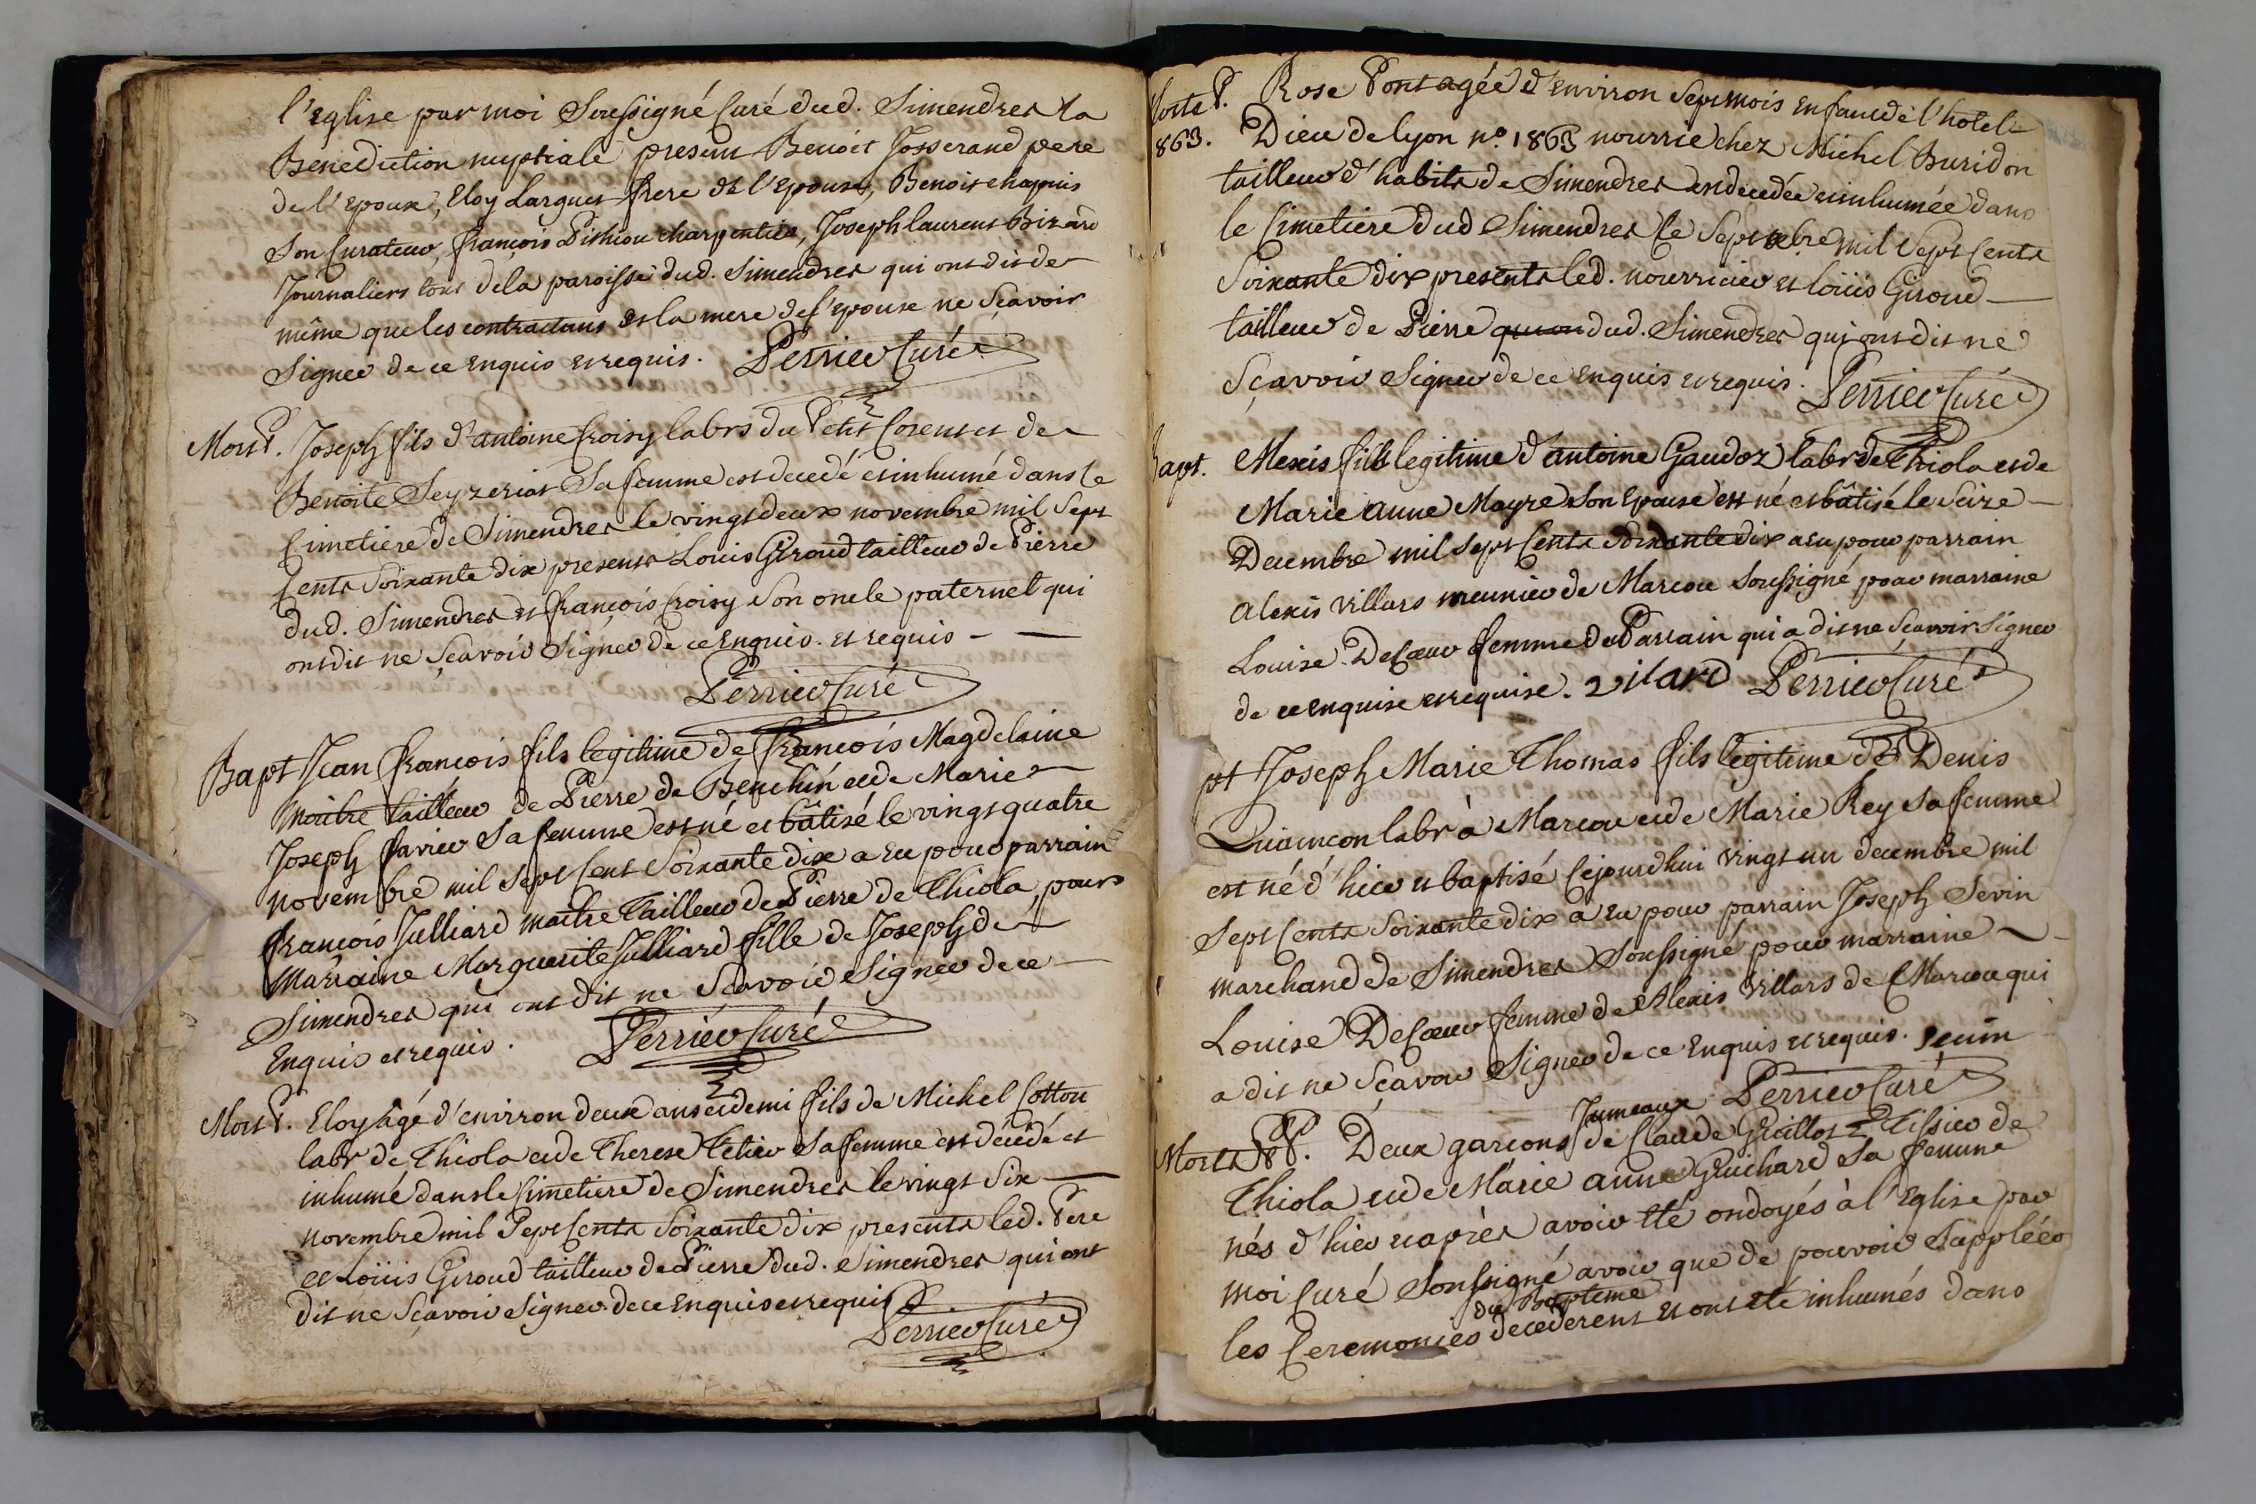 l'Eglise par moi Soussigné Curé dud. Simendres la
Benediction nuptiale present Benoit Josserand pere
de l'Epoux, Eloy Larguet frere de l'Epouse, Benoit chapuis
Son Curateur, françois Pithiou charpentier, Joseph laurent Bizard
Journaliers tous de la paroisse dud. Simendres qui ont dit de
même que les contractans et la mere de l'epouse ne Sçavoir
Signer de ce enquis et requis. Perrier Curé
Mort P. Joseph fils d'antoine Croisy labrs du Petit Corent et de
Benoite Seyzeriat Sa femme est decedé et inhumé dans le
Cimetiere de Simendres le vingt deux novembre mil Sept
Cents Soixante dix presents Louis Giroud tailleur de Pierre
dud. Simendres et françois Croisy Son oncle paternel qui
ont dit ne Sçavoir Signer de ce Enquis. et requis
Perrier Curé
Bapt Jean françois fils legitime de françois Magdelaine
Maitre tailleur de Pierre de et de Marie
Joseph favier Sa femme est né et bâtisé le vingt quatre
novembre mil Sept Cent Soixante dix a eu pour parrain
françois Julliard maitre Tailleur de Pierre de Thiola, pour
Marraine Marguerite Julliard fille de Joseph de
Simendres qui ont dit ne Scavoir Signer de ce
Enquis et requis. Perrier Curé
Mort P. Eloy âgé d'environ deux ans et demi fils de Michel Cotton
labr de Thiola et de Therese Sa femme est décédé et
inhumé dans le Cimetiere de Simendres le vingt Six
novembre mil Sept Cents Soixante dix presents led. Pere
et Loüis Giroud tailleur de Pierre dud. Simendres qui ont
dit ne Sçavoir Signer de ce Enquis et requis
Perrier Curé
Morte P. Rose Pont agée d'environ Sept mois enfant de l'hotel
863. Dieu de lyon n.o 1863 nourrie chez Michel Buridon
tailleur d'habits de Simendres est decedée et inhumée dans
le Cimetiere dud Simendres le Sept xbre mil Sept Cents
Soixante dix presents led. nourricier et loüis Giroud
tailleur de Pierre dud. Simendres qui ont dit ne
Sçavoir Signer de ce enquis et requis. Perrier Curé
Bapt. Alexis fils legitime d'antoine Gaudoz labr de Thiola et de
Marie anne Mayre Son Epouse est né et bâtisé le Seize
Decembre mil Sept Cents Soixante dix a eu pour parrain
alexis villars meunier de Marcou Soussigné pour marraine
Louise Decœur femme du Parrain qui a dit ne Sçavoir Signer
de ce enquise et requise. vilard Perrier Curé
pt Joseph Marie Thomas fils legitime de Denis
Quiançon labr à Marcou et de Marie Rey Sa femme
est né d'hier et baptisé Cejourdhui vingt un decembre mil
Sept Cents Soixante dix a eu pour parrain Joseph Sevin
marchand de Simendres Soussigné pour marraine
Louise Decœur femme de Alexis villars de Marcou qui
a dit ne Sçavoir Signer de ce enquis et requis. Seuin
Perrier Curé
Morts PP. Deux garçons Jumeaux de Claude Guillot Tissier de
Thiola et de Marie anne Guichard Sa femme
nés d'hier et après avoir eté ondoyés à l'Eglise par
moi Curé Soussigné avoir que de pouvoir Suppléer
les Ceremonies du Bapteme decederent et ont eté inhumés dans